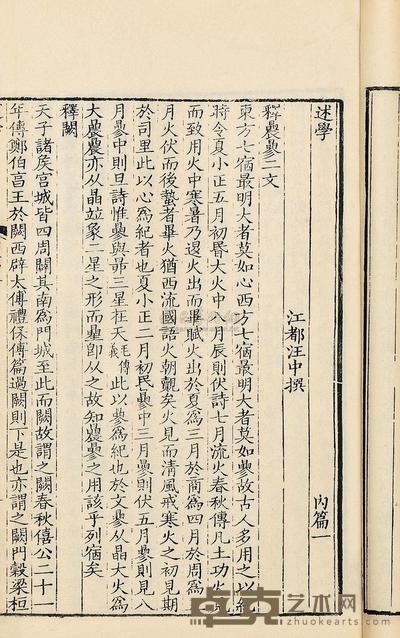 述學 內篇一
江都汪中撰
釋曟曑二文
東方七宿最明大者莫如心西方七宿最明大者莫如曑故古人多用之以紀
時令夏小正五月初昬大火中八月辰則伏詩七月流火春秋傳凡土功火見
而致用火中寒暑乃退火出而畢賦火出於夏爲三月於商爲四月於周爲
月火伏而後蟄者畢火猶西流國語火朝覿矣火見而清風戒寒火之初見期
於司里此以心爲紀者也夏小正二月初昬曑中三月曑則伏五月曑則見八
月曑中則旦詩惟曑與昴三星在天毛傳此以曑爲紀也於文曑从晶大火爲
大曟曟亦从晶竝象二星之形而曐卽从之故知曟曑之用該乎列宿矣
釋闕
天子諸侯宮城皆四周闕其南爲門城至此而闕故謂之闕春秋僖公二十一
年傳鄭伯亯王於闕西辟太傅禮保傅篇過闕則下是也亦謂之闕門穀梁桓
艺术网
ARTRON.NET